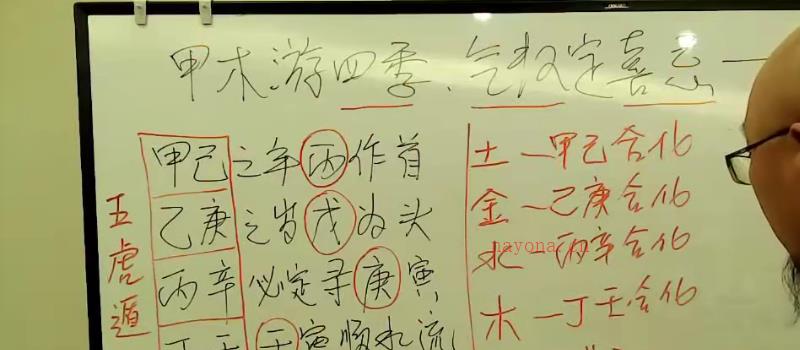 甲木游四季、气权定喜忌一
五虎遁
甲己之年丙作首
乙庚之岁戊为头
丙辛必定寻庚寅
丁壬壬寅顺水流
土一甲己合化
金一己庚合化
水一丙辛合化
木一丁壬合化
nayona